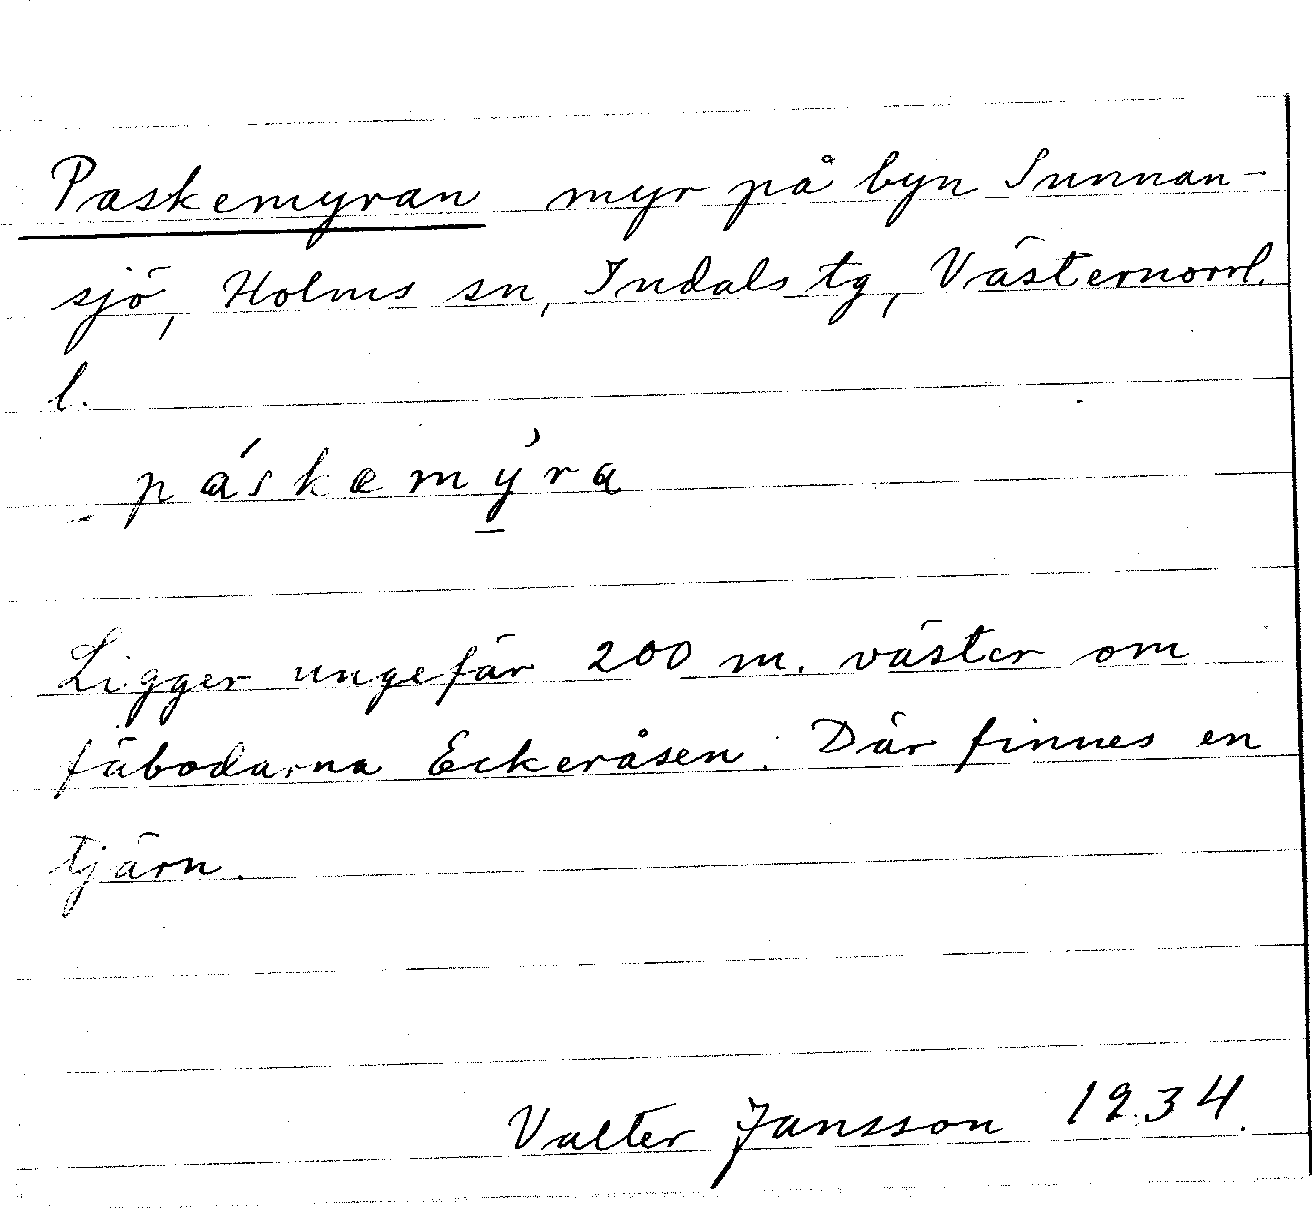 Paskemyran myr på byn Sunnan-
sjö, Holms sn, Indals tg, Västernorrl.
l.
páskemỳ̱ra
Ligger ungefär 200 m. väster om
fäbodarna Eckeråsen. Där finnes en
tjärn.
Valter Jansson 1934.